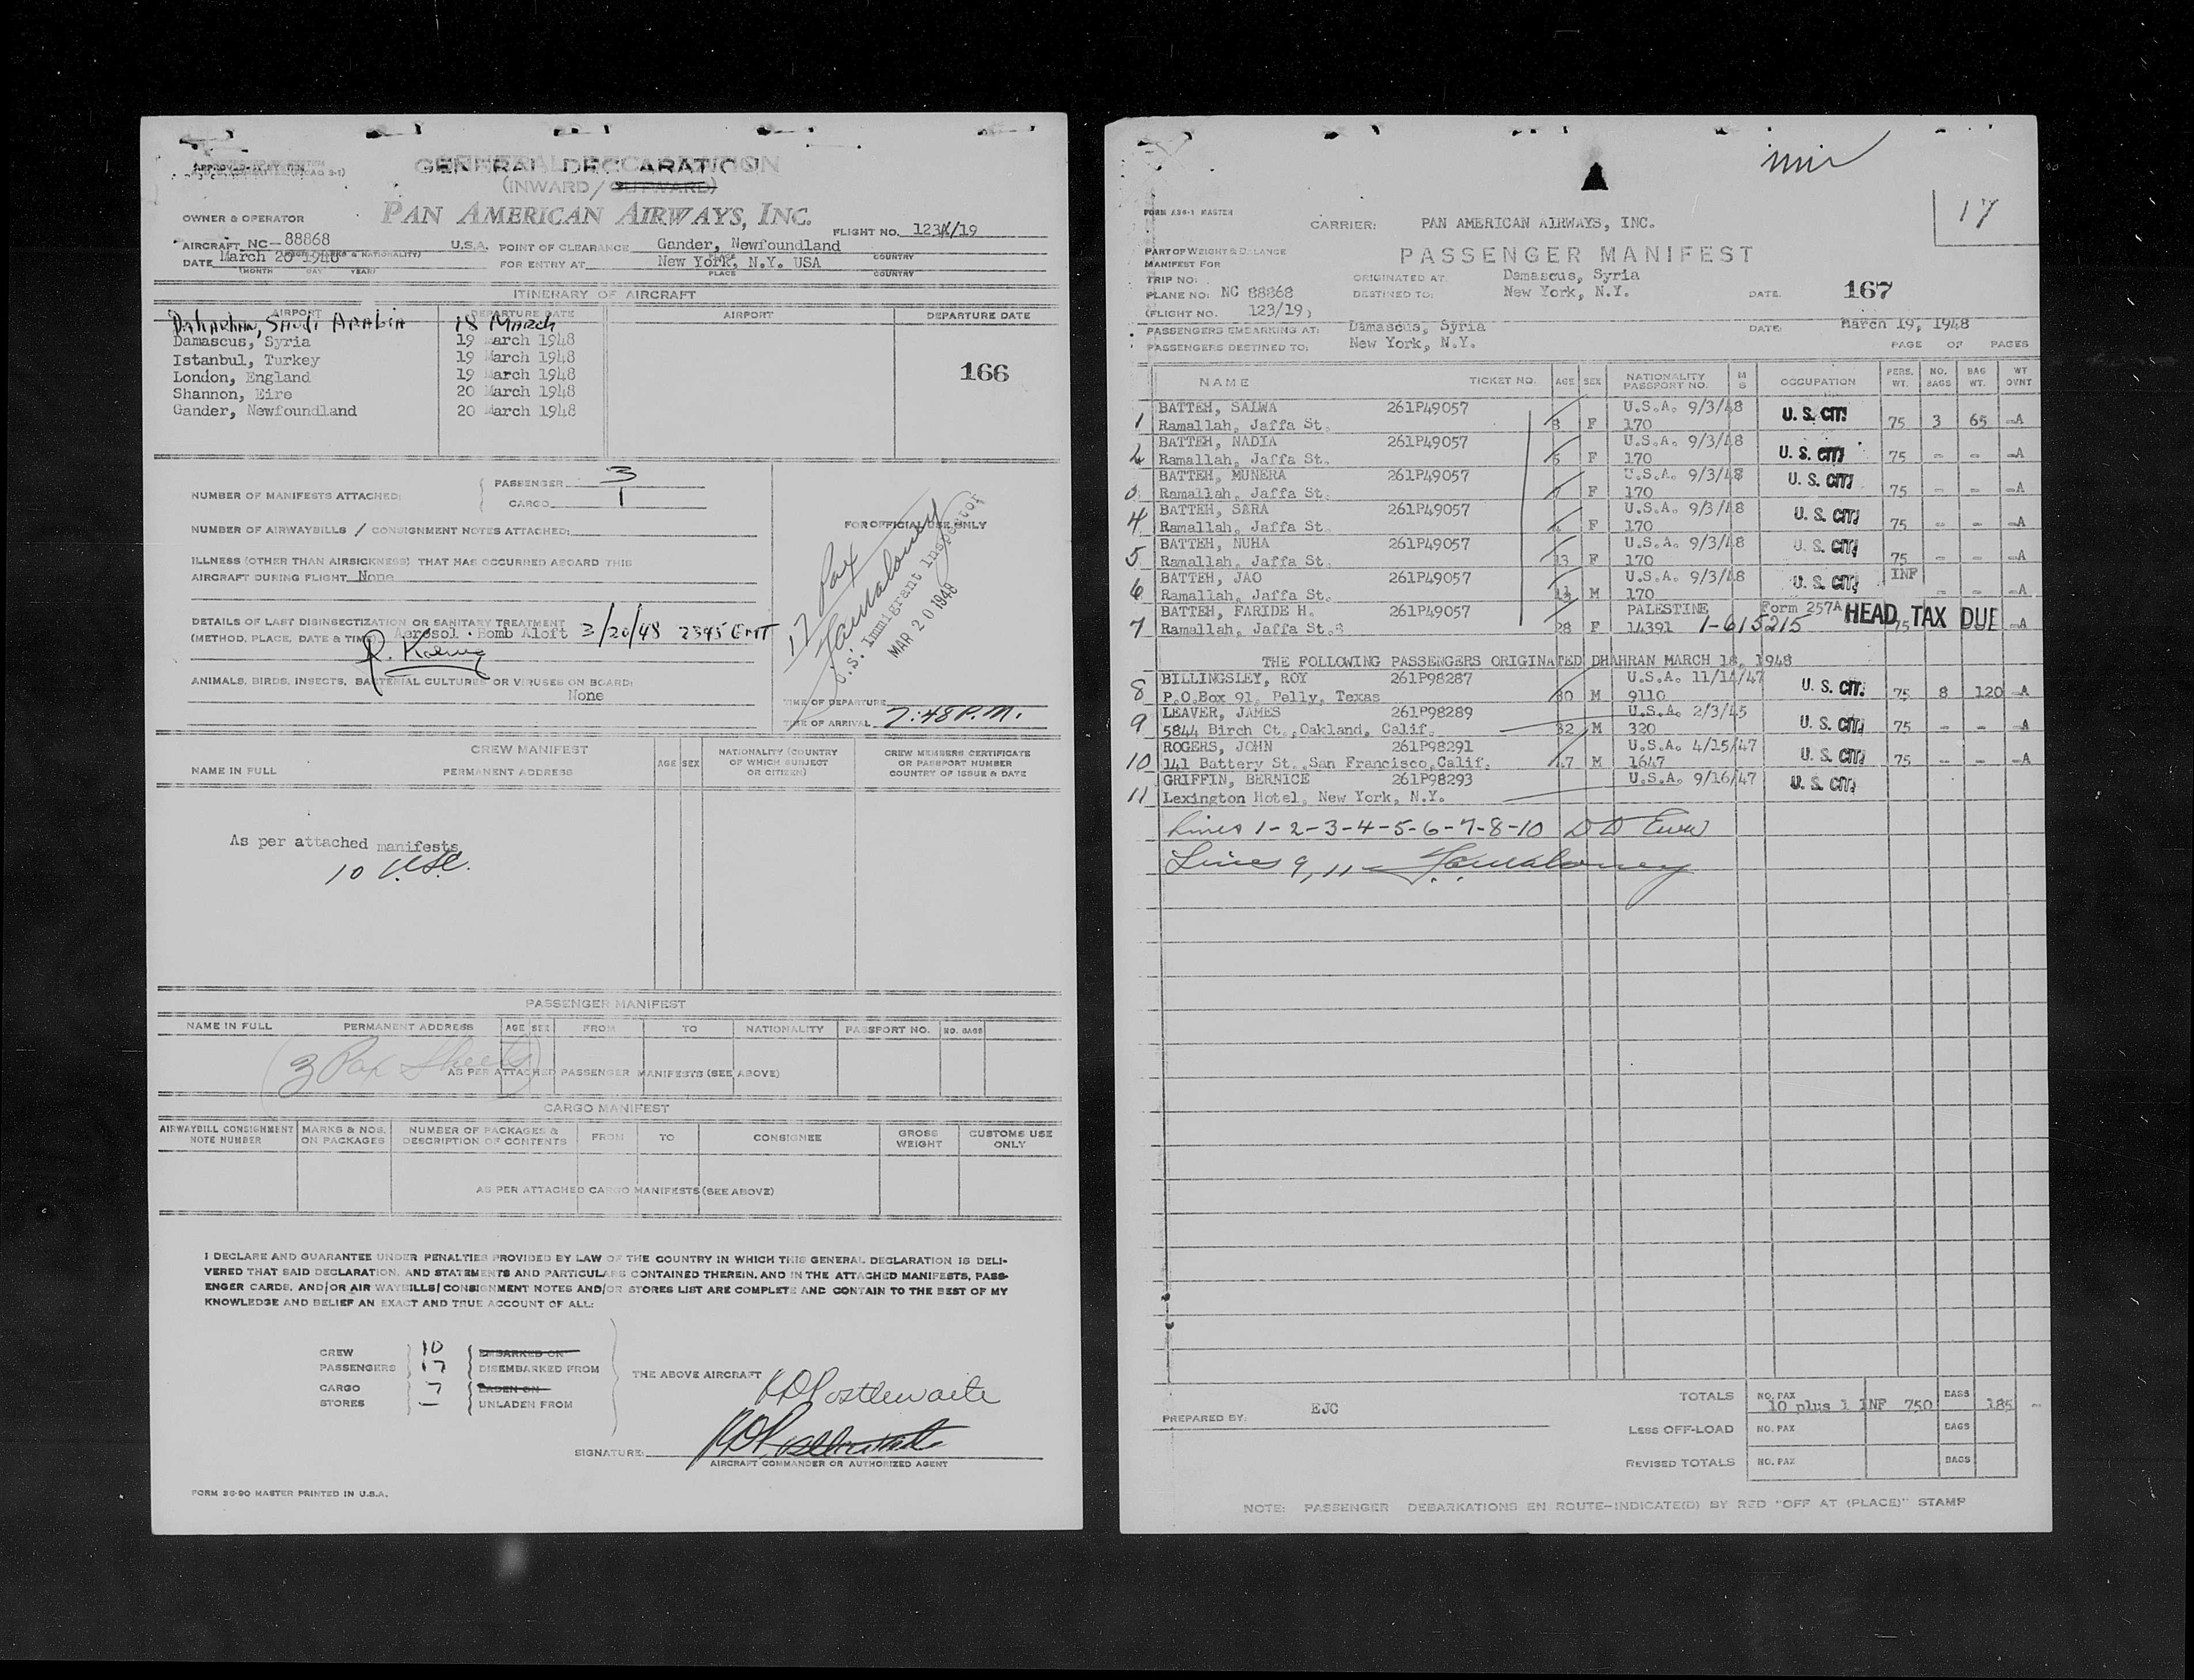 GENERAL DECLARATION
(INWARD / OUTWARD)
PAN AMERICAN AIRWAYS, INC.
OWNER & OPERATOR
FLIGHT NO. 123X/19
AIRCRAFT NC- 88868 U.S.A. POINT OF CLEARANCE Gander, Newfoundland
(REGIS. MARKS & NATIONALITY) PLACE COUNTRY
DATE March 20 1948 FOR ENTRY AT New York, N.Y. USA
(MONTH DAY YEAR) PLACE COUNTRY
ITINERARY OF AIRCRAFT
AIRPORT DEPARTURE DATE AIRPORT DEPARTURE DATE
Daharhan, Saudi Arabia 18 March
Damascus, Syria 19 March 1948
Istanbul, Turkey 19 March 1948
London, England 19 March 1948
Shannon, Eire 20 March 1948
Gander, Newfoundland 20 March 1948
166
NUMBER OF MANIFESTS ATTACHED:
PASSENGER 3
CARGO 1
NUMBER OF AIRWAYBILLS / CONSIGNMENT NOTES ATTACHED:
ILLNESS (OTHER THAN AIRSICKNESS) THAT HAS OCCURRED ABOARD THIS
AIRCRAFT DURING FLIGHT None
DETAILS OF LAST DISINSECTIZATION OR SANITARY TREATMENT
(METHOD, PLACE, DATE & TIME) Aerosol Bomb Aloft 3/20/48 2345 GMT
ANIMALS, BIRDS, INSECTS, BACTERIAL CULTURES OR VIRUSES ON BOARD:
None
FOR OFFICIAL USE ONLY
17 Pax
U.S. Immigrant Inspector
MAR 20 1948
TIME OF DEPARTURE
TIME OF ARRIVAL 7:48 P.M.
CREW MANIFEST
NAME IN FULL PERMANENT ADDRESS AGE SEX NATIONALITY (COUNTRY OF WHICH SUBJECT OR CITIZEN) CREW MEMBERS CERTIFICATE OR PASSPORT NUMBER COUNTRY OF ISSUE & DATE
As per attached manifests
10 USC.
PASSENGER MANIFEST
NAME IN FULL PERMANENT ADDRESS AGE SEX FROM TO NATIONALITY PASSPORT NO. NO. BAGS
3 Pax Sheets
AS PER ATTACHED PASSENGER MANIFESTS (SEE ABOVE)
CARGO MANIFEST
AIRWAYBILL CONSIGNMENT NOTE NUMBER MARKS & NOS. ON PACKAGES NUMBER OF PACKAGES & DESCRIPTION OF CONTENTS FROM TO CONSIGNEE GROSS WEIGHT CUSTOMS USE ONLY
AS PER ATTACHED CARGO MANIFESTS (SEE ABOVE)
I DECLARE AND GUARANTEE UNDER PENALTIES PROVIDED BY LAW OF THE COUNTRY IN WHICH THIS GENERAL DECLARATION IS DELI-
VERED THAT SAID DECLARATION, AND STATEMENTS AND PARTICULARS CONTAINED THEREIN, AND IN THE ATTACHED MANIFESTS, PASS-
ENGER CARDS, AND/OR AIR WAYBILLS/CONSIGNMENT NOTES AND/OR STORES LIST ARE COMPLETE AND CONTAIN TO THE BEST OF MY
KNOWLEDGE AND BELIEF AN EXACT AND TRUE ACCOUNT OF ALL:
CREW 10 EMBARKED ON
PASSENGERS 17 DISEMBARKED FROM
THE ABOVE AIRCRAFT
CARGO 7 LADEN ON
STORES — UNLADEN FROM
Postlewaite
SIGNATURE:
AIRCRAFT COMMANDER OR AUTHORIZED AGENT
FORM 36-90 MASTER PRINTED IN U.S.A.
17
CARRIER: PAN AMERICAN AIRWAYS, INC.
PART OF WEIGHT & BALANCE
PASSENGER MANIFEST
MANIFEST FOR
TRIP NO: ORIGINATED AT Damascus, Syria
PLANE NO: NC 88868 DESTINED TO: New York, N.Y. DATE. 167
(FLIGHT NO. 123/19)
PASSENGERS EMBARKING AT: Damascus, Syria DATE: March 19, 1948
PASSENGERS DESTINED TO: New York, N.Y. PAGE OF PAGES
NAME TICKET NO. AGE SEX NATIONALITY PASSPORT NO. M S OCCUPATION PERS. WT. NO. BAGS BAG WT. WT OVNT
1 BATTEH, SALWA 261P49057 U.S.A. 9/3/48 U. S. CIT.
Ramallah, Jaffa St. 8 F 170 75 3 65 -A
2 BATTEH, NADIA 261P49057 U.S.A. 9/3/48 U. S. CIT.
Ramallah, Jaffa St. F 170 75 - - -A
3 BATTEH, MUNERA 261P49057 U.S.A. 9/3/48 U. S. CIT.
Ramallah, Jaffa St. F 170 75 - - -A
4 BATTEH, SARA 261P49057 U.S.A. 9/3/48 U. S. CIT.
Ramallah, Jaffa St. F 170 75 - - -A
5 BATTEH, NUHA 261P49057 U.S.A. 9/3/48 U. S. CIT.
Ramallah, Jaffa St. F 170 75 - - -A
6 BATTEH, JAO 261P49057 U.S.A. 9/3/48 U. S. CIT. INF
Ramallah, Jaffa St. M 170 -A
7 BATTEH, FARIDE H. 261P49057 PALESTINE Form 257A HEAD TAX DUE
Ramallah, Jaffa St. 28 F 14391 1-615215 75 -A
THE FOLLOWING PASSENGERS ORIGINATED DHAHRAN MARCH 18, 1948
8 BILLINGSLEY, ROY 261P98287 U.S.A. 11/14/47 U. S. CIT.
P.O.Box 91, Pelly, Texas 30 M 9110 75 8 120 -A
9 LEAVER, JAMES 261P98289 U.S.A. 2/3/45 U. S. CIT.
5844 Birch Ct.,Oakland, Calif. 32 M 320 75 - - -A
10 ROGERS, JOHN 261P98291 U.S.A. 4/15/47 U. S. CIT.
141 Battery St.,San Francisco,Calif. 47 M 1647 75 - - -A
11 GRIFFIN, BERNICE 261P98293 U.S.A. 9/16/47 U. S. CIT.
Lexington Hotel, New York, N.Y.
Lines 1-2-3-4-5-6-7-8-10
Lines 9, 11
TOTALS NO. PAX 10 plus 1 INF 750 BAGS 185 -
PREPARED BY: EJC
LESS OFF-LOAD NO. PAX BAGS
REVISED TOTALS NO. PAX BAGS
NOTE: PASSENGER DEBARKATIONS EN ROUTE-INDICATE(D) BY RED "OFF AT (PLACE)" STAMP